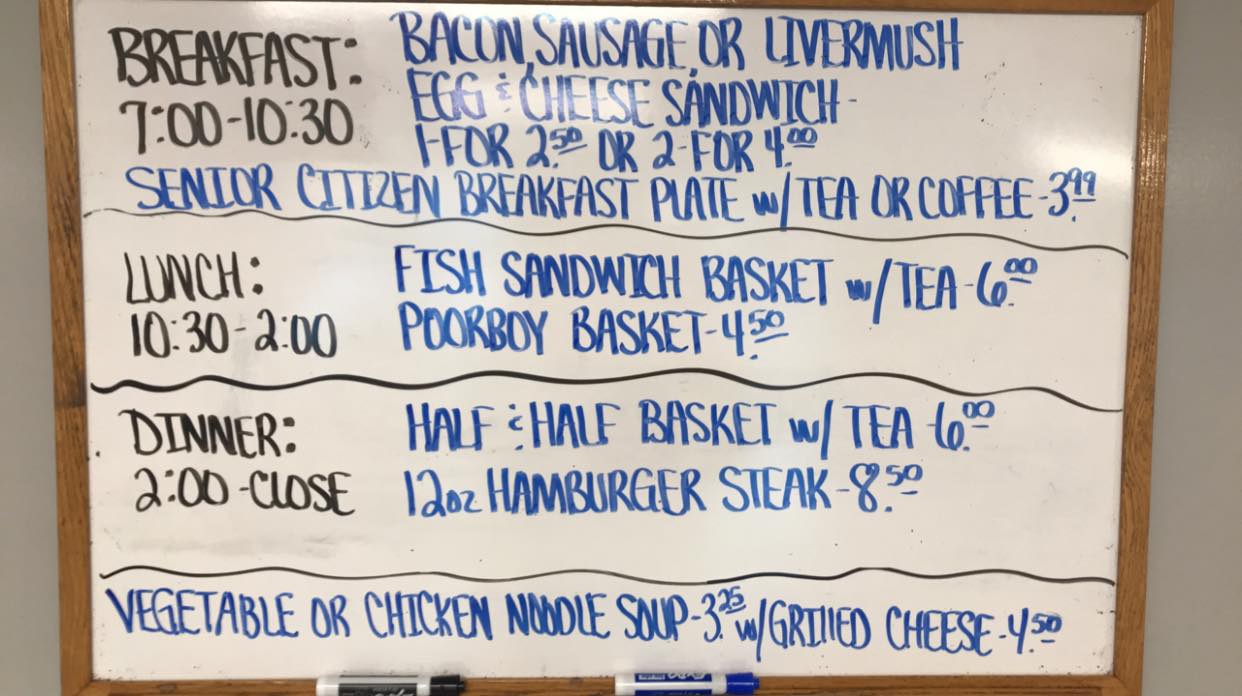 BREAKFAST:
7:00-10:30
BACON, SAUSAGE, OR LIVERMUSH
EGG & CHEESE SANDWICH-
1-FOR 2.50 OR 2-FOR 4.00
SENIOR CITIZEN BREAKFAST PLATE w/TEA OR COFFEE-3.99
LUNCH:
10:30-2:00
FISH SANDWICH BASKET w/TEA-6.00
POORBOY BASKET-4.50
DINNER:
2:00-CLOSE
HALF & HALF BASKET w/ TEA-6.00
12oz HAMBURGER STEAK-8.50
VEGETABLE OR CHICKEN NOODLE SOUP-3.25 w/GRILLED CHEESE-4.50